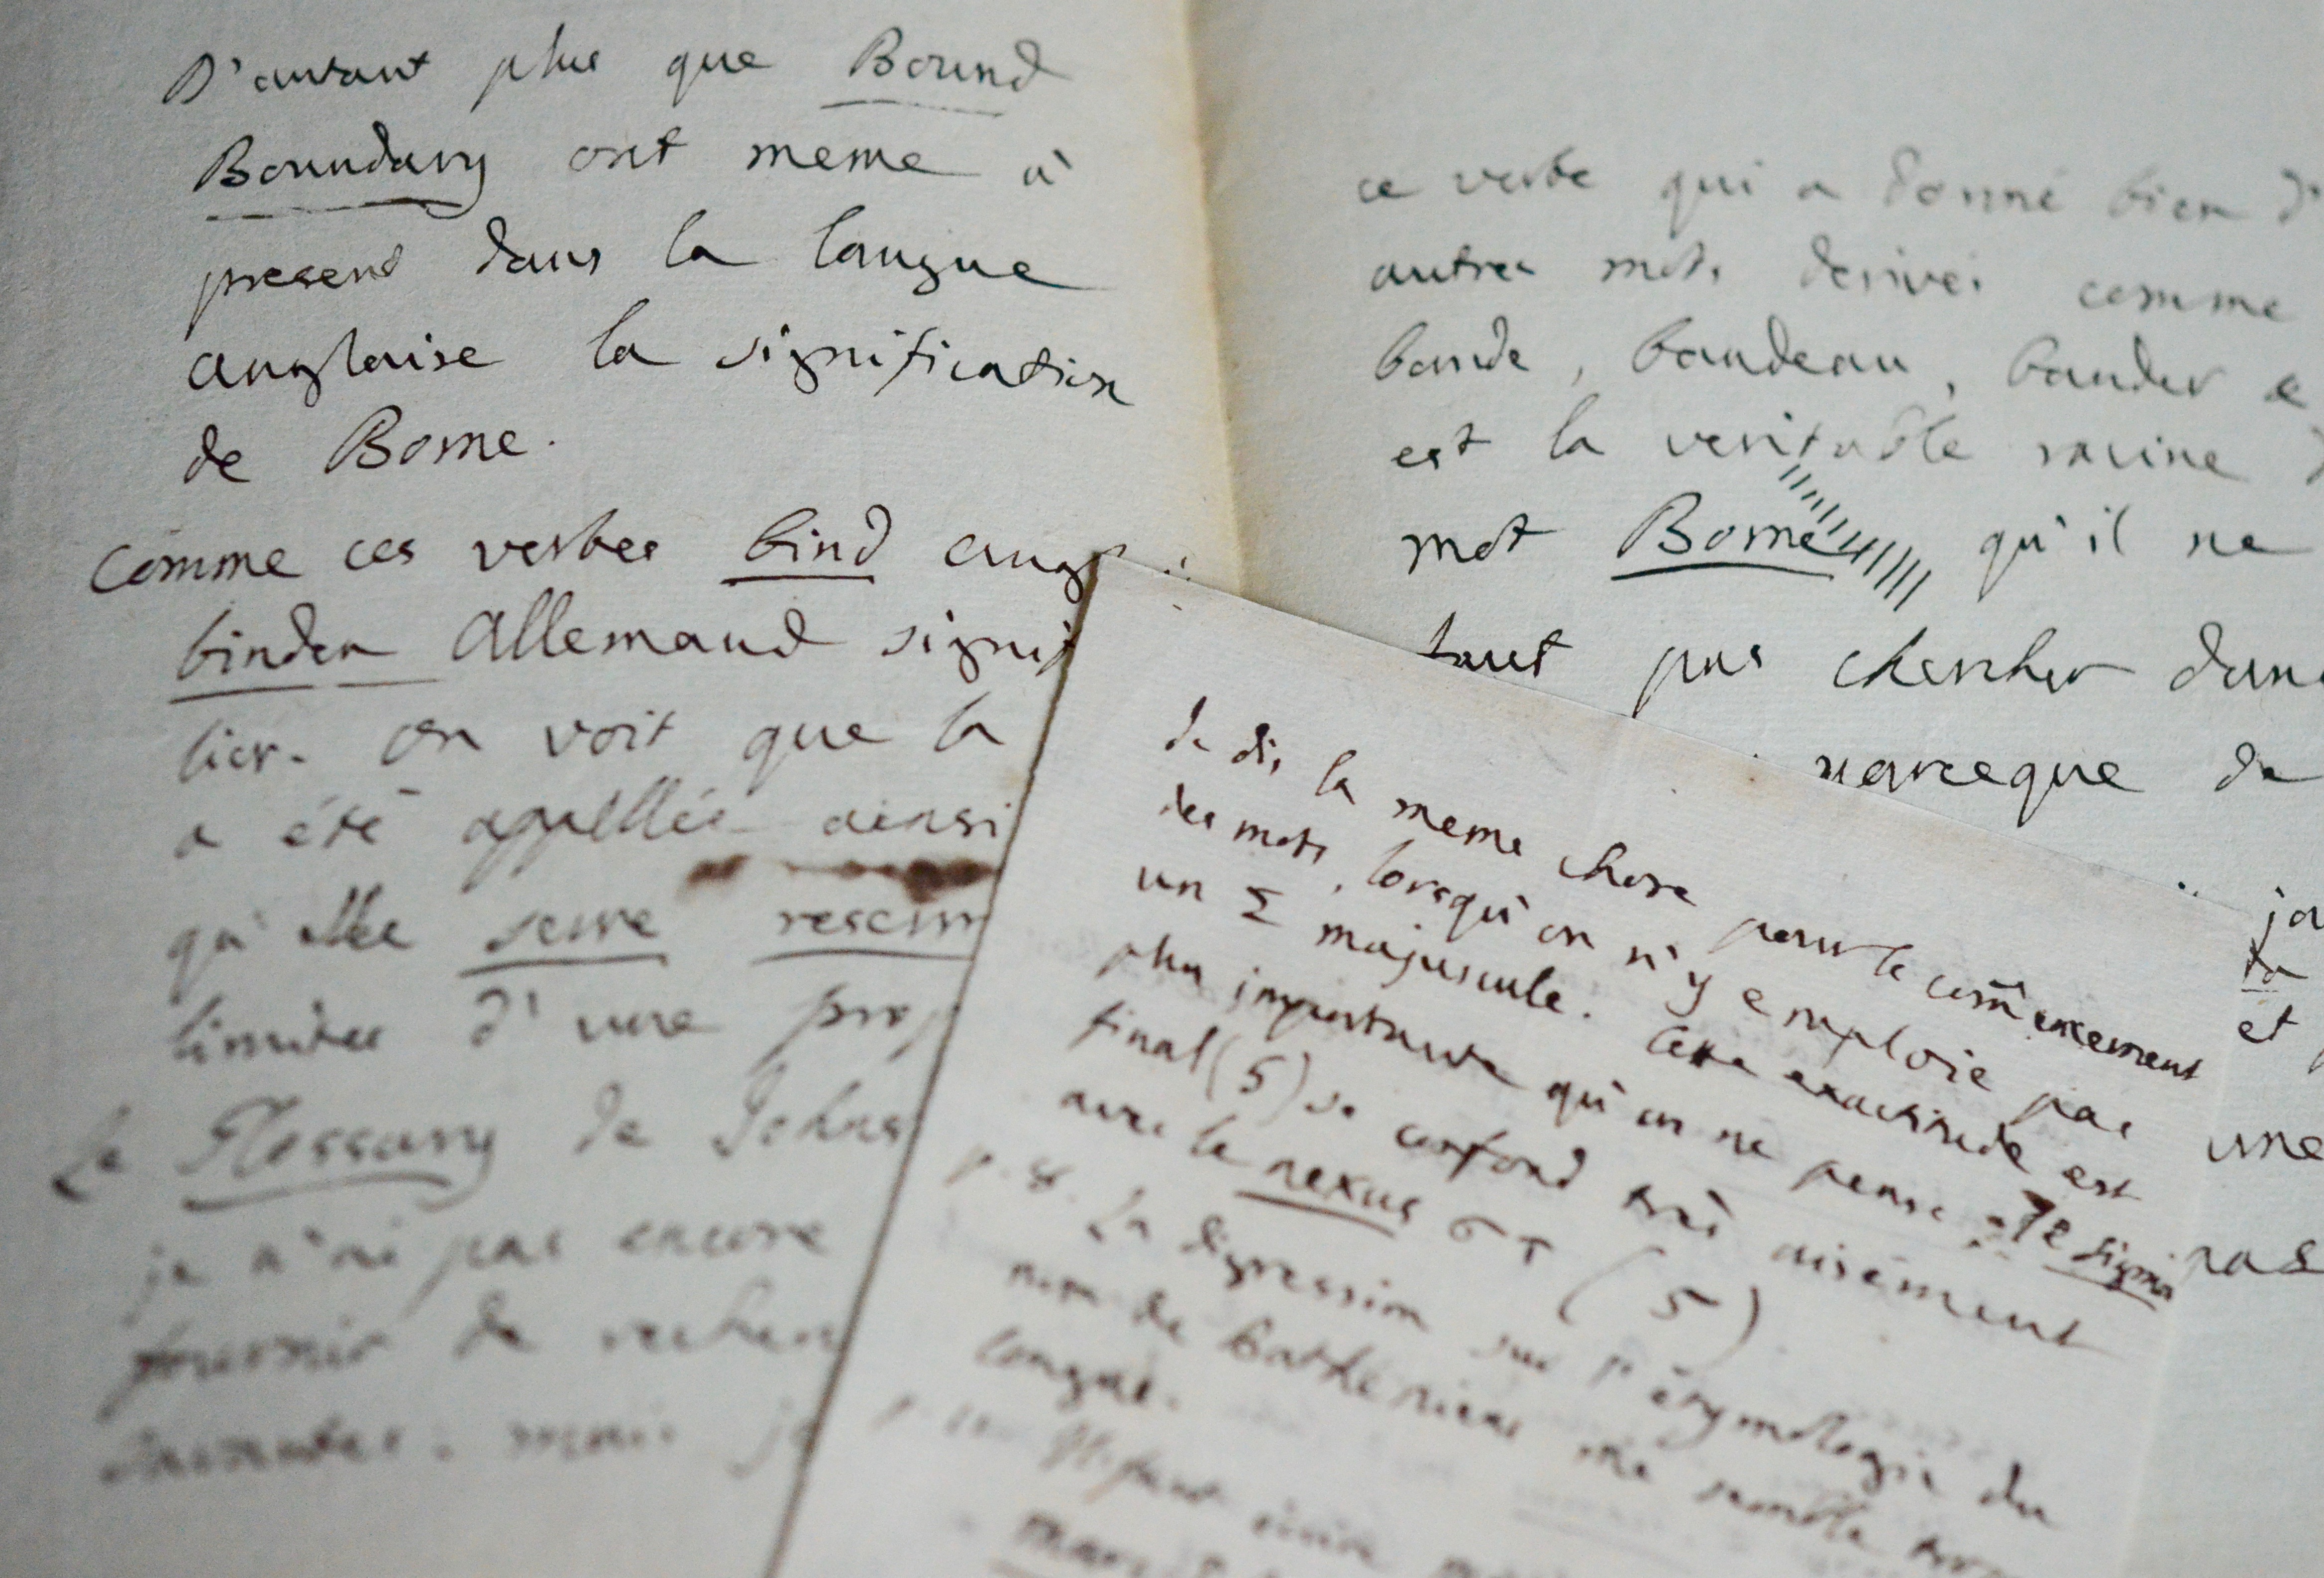 D'autant plus que Bound
Boundary ont meme à
present dans la langue
anglaise la signification
de Borne.
Comme ces verbes bind ang
binden Allemand signif
lier. on voit que la
a été appellée ainsi
qu'elle serre reserr
limites d'une prop
Le Glossary de Johns
je n'ai pas encore
fournir de
mais je
ce verbe qui a donné bien d'
autres mots derivés comme
bande, bandeau, bander e
est la veritable racine d
mot Borne qu'il ne
faut pas chercher dans
parceque de
ja
et
une
pas
Je dis la meme chose pour le com̃encement
des mots, lorsqu'on n'y emploie pas
un Σ majuscule. Cette exactitude est
plus importante qu'on ne pense. Le sigma
final (ς) se confond très aisément
avec le nexus στ (ϛ).
p. 8. La digression sur l'étymologie du
nom de me semble trop
longue.
p. Il faut écrire